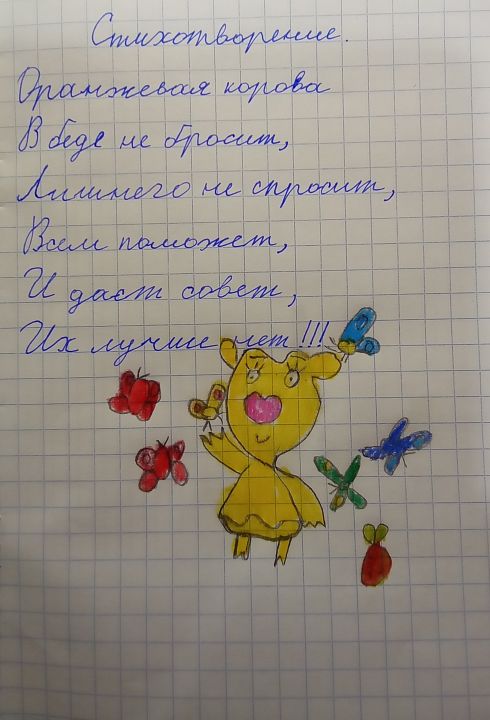 Стихотворение.
Оранжевая корова
В беде не бросит,
Лишнего не спросит,
Всем поможет,
И даст совет,
Их лучше нет!!!